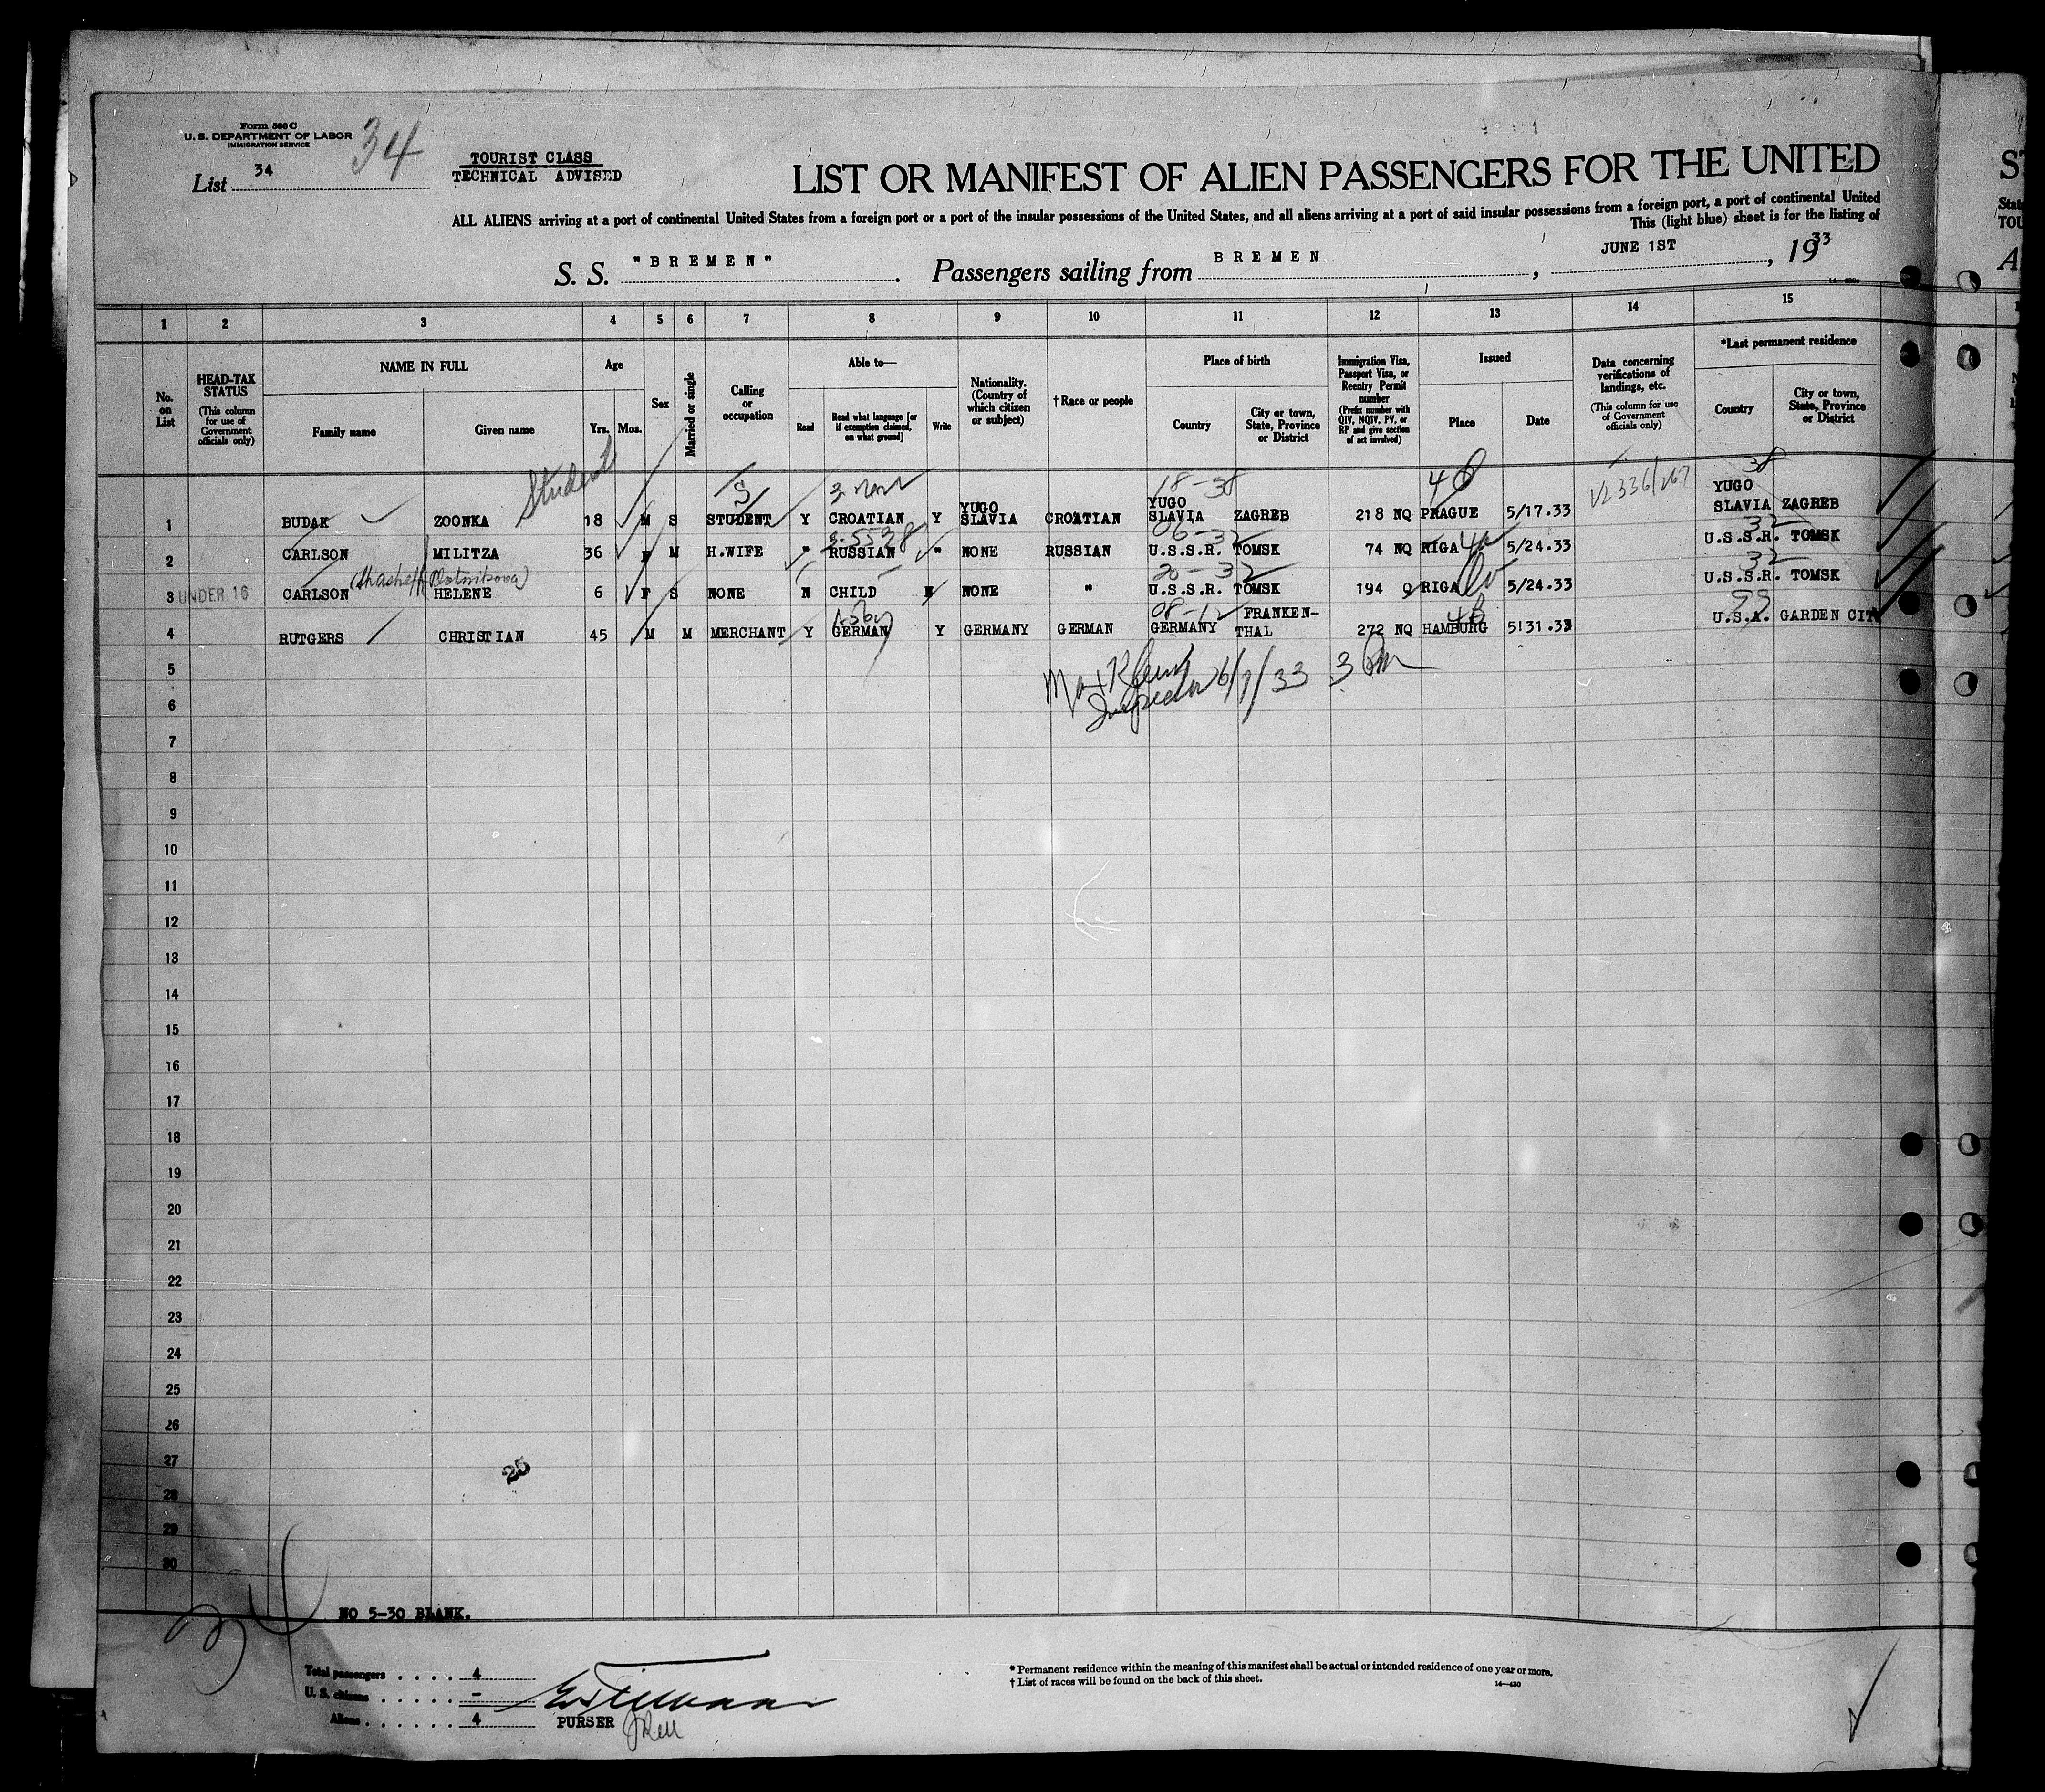 Form 500 C
U. S. DEPARTMENT OF LABOR
IMMIGRATION SERVICE
List 34
34
TOURIST CLASS
TECHNICAL ADVISED
LIST OR MANIFEST OF ALIEN PASSENGERS FOR THE UNITED
ALL ALIENS arriving at a port of continental United States from a foreign port or a port of the insular possessions of the United States, and all aliens arriving at a port of said insular possessions from a foreign port, a port of continental United
This (light blue) sheet is for the listing of
S. S. "BREMEN". Passengers sailing from BREMEN, JUNE 1ST, 1933
1 2 3 4 5 6 7 8 9 10 11 12 13 14 15
No. on List
HEAD-TAX STATUS (This column for use of Government officials only)
NAME IN FULL
Family name Given name
Age
Yrs. Mos.
Sex
Married or single
Calling or occupation
Able to—
Read Read what language [or if exemption claimed, on what ground] Write
Nationality. (Country of which citizen or subject)
† Race or people
Place of birth
Country City or town, State, Province or District
Immigration Visa, Passport Visa, or Reentry Permit number (Prefix number with QIV, NQIV, PV, or RP and give section of act involved)
Issued
Place Date
Data concerning verifications of landings, etc. (This column for use of Government officials only)
*Last permanent residence
Country City or town, State, Province or District
Student S 18-38 38
1 BUDAK ZOONKA 18 M S STUDENT Y CROATIAN Y YUGO SLAVIA CROATIAN YUGO SLAVIA ZAGREB 218 NQ PRAGUE 5/17.33 YUGO SLAVIA ZAGREB
06-32 32
2 CARLSON MILITZA 36 F M H.WIFE " RUSSIAN " NONE RUSSIAN U.S.S.R. TOMSK 74 NQ RIGA 5/24.33 U.S.S.R. TOMSK
20-32 32
3 UNDER 16 CARLSON HELENE 6 F S NONE N CHILD N NONE " U.S.S.R. TOMSK 194 Q RIGA 5/24.33 U.S.S.R. TOMSK
08-12 99
4 RUTGERS CHRISTIAN 45 M M MERCHANT Y GERMAN Y GERMANY GERMAN GERMANY FRANKEN-THAL 272 NQ HAMBURG 5!31.33 U.S.A. GARDEN CITY
5
Inspector 6/7/33 3 Pm
6
7
8
9
10
11
12
13
14
15
16
17
18
19
20
21
22
23
24
25
26
27
25
28
29
30
34
NO 5-30 BLANK.
Total passengers . . . . 4
U. S. citizens . . . . . –
Aliens . . . . . . 4
PURSER
* Permanent residence within the meaning of this manifest shall be actual or intended residence of one year or more.
† List of races will be found on the back of this sheet.
14—430